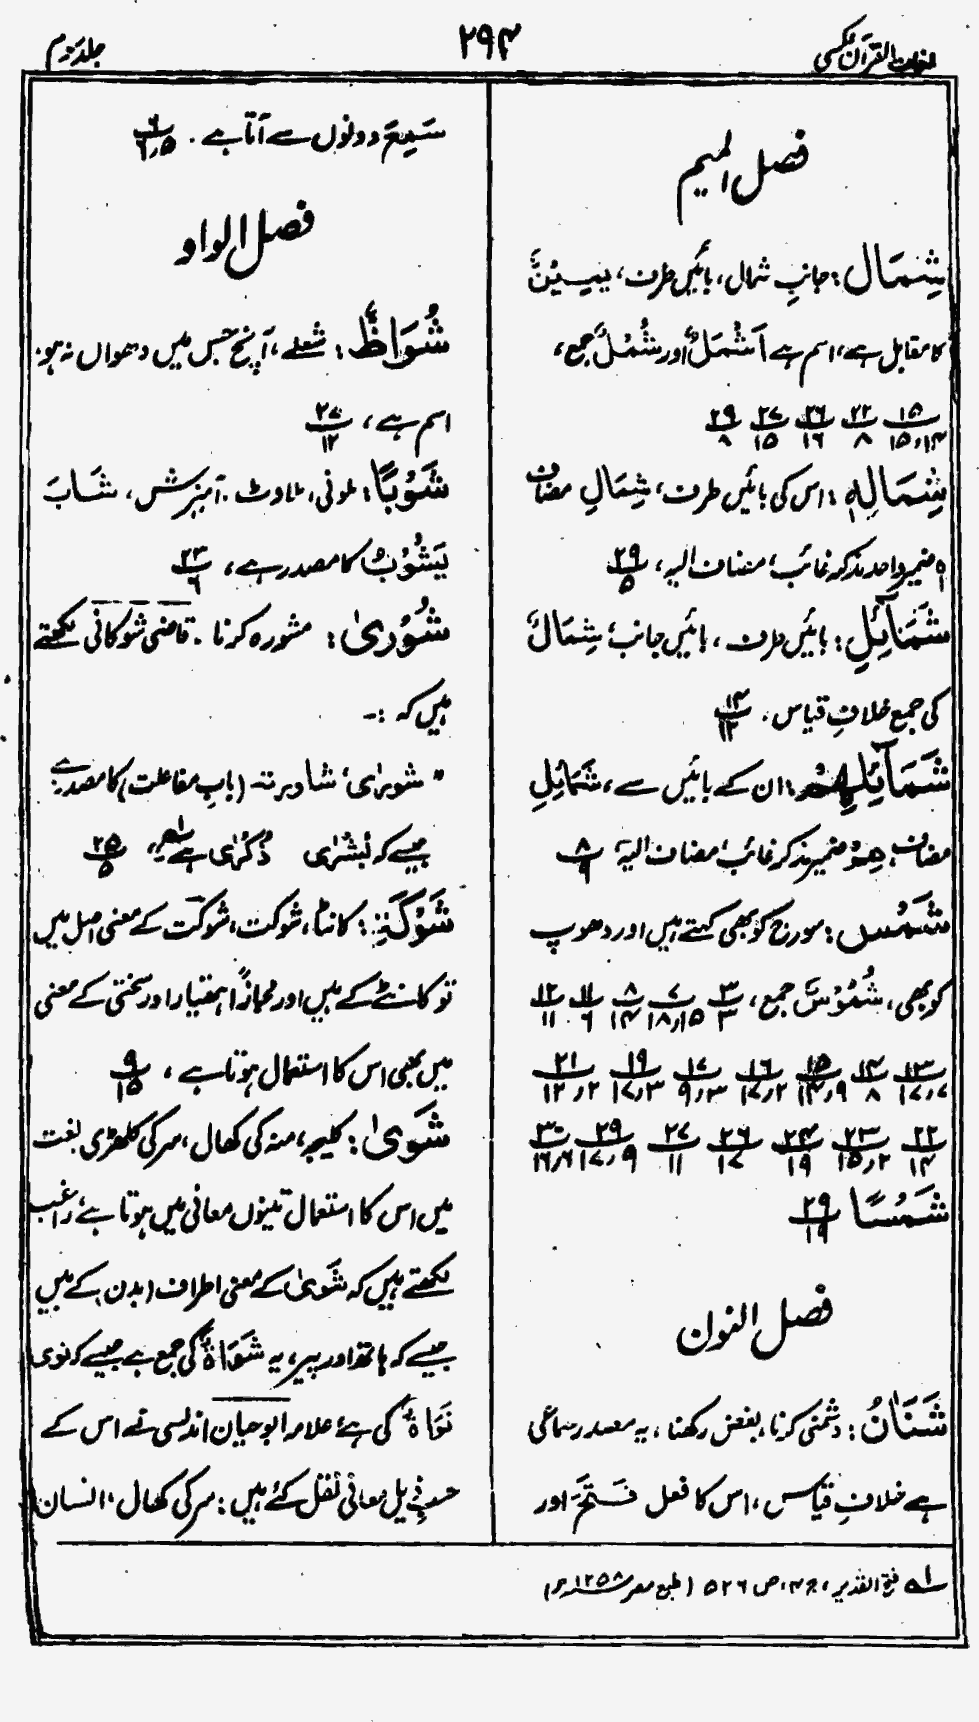 لغات القرآن عکسی
۲۹۴
جلد سوم
فصل المیم
شِمَال : جانبِ شمال، بائیں طرف، یَمِیْنٌ
کا مقابل ہے، اسم ہے اَشْمَلٌ اور شُمُلٌ جمع،
۱۵/۱۵،۱۴ ۲۲/۸ ۲۶/۱۶ ۲۷/۱۵ ۲۹/۸
شِمَالِہٖ : اس کی بائیں طرف، شِمَالِ مضاف
ہٖ ضمیر واحد مذکر غائب، مضاف الیہ، ۲۹/۵
شَمَآئِلِ : بائیں طرف، بائیں جانب، شِمَالٌ
کی جمع خلافِ قیاس۔ ۱۴/۱۲
شَمَآئِلِھِمْ : ان کے بائیں سے، شَمَائِلِ
مضاف، ھِمْ ضمیر مذکر غائب، مضاف الیہ ۸/۹
شَمْس : سورج کو بھی کہتے ہیں اور دھوپ
کو بھی، شُمُوْسٌ جمع، ۳/۳ ۷/۱۸،۱۵ ۸/۱۴ ۱۱/۶ ۱۲/۱۱
۱۳/۱۷،۷ ۱۴/۸ ۱۵/۱۴،۹ ۱۶/۱۷،۲ ۱۷/۹،۳ ۱۹/۱۷،۳ ۲۱/۱۲،۲
۲۲/۱۴ ۲۳/۱۵،۲ ۲۴/۱۹ ۲۶/۱۷ ۲۷/۱۱ ۲۹/۱۷،۹ ۳۰/۱۶،۶
شَمْسًا ۲۹/۱۹
فصل النون
شَنَاٰنُ : دشمنی کرنا، بغض رکھنا، یہ مصدر سماعی
ہے خلافِ قیاس، اس کا فعل فَتَحَ اور
سَمِعَ دونوں سے آتا ہے۔ ۶/۶،۵
فصل الواو
شُوَاظٌ : شعلے، آنچ جس میں دھواں نہ ہو،
اسم ہے، ۲۷/۱۲
شَوْبًا : ملونی، ملاوٹ، آمیزش، شَابَ
یَشُوْبُ کا مصدر ہے، ۲۳/۶
شُوْریٰ : مشورہ کرنا۔ قاضی شوکانی لکھتے
ہیں کہ :۔
" شوریٰ، شاورتہ (بابِ مفاعلت) کا مصدر ہے
جیسے کہ بُشْرٰی ذِکْرٰی ہے لہ، ۲۵/۵
شَوْکَۃِ : کانٹا، شوکت، شوکت کے معنی اصل میں
تو کانٹے کے ہیں اور مجازاً ہتھیار اور سختی کے معنی
میں بھی اس کا استعمال ہوتا ہے، ۹/۱۵
شَویٰ : کلیجہ، منہ کی کھال، سر کی کلھڑی لغت
میں اس کا استعمال تینوں معانی میں ہوتا ہے، راغب
لکھتے ہیں کہ شَویٰ کے معنی اطراف (بدن) کے ہیں
جیسے کہ ہاتھ اور پیر، یہ شَوَاۃٌ کی جمع ہے جیسے کہ نوی
نَوَاۃٌ کی ہے، علامہ ابو حیان اندلسی نے اس کے
حسبِ ذیل معانی نقل کئے ہیں : سر کی کھال، انسان
لہ فتح القدیر، ج ۴، ص ۵۲۶ (طبع مصر ۱۲۵۸ھ)